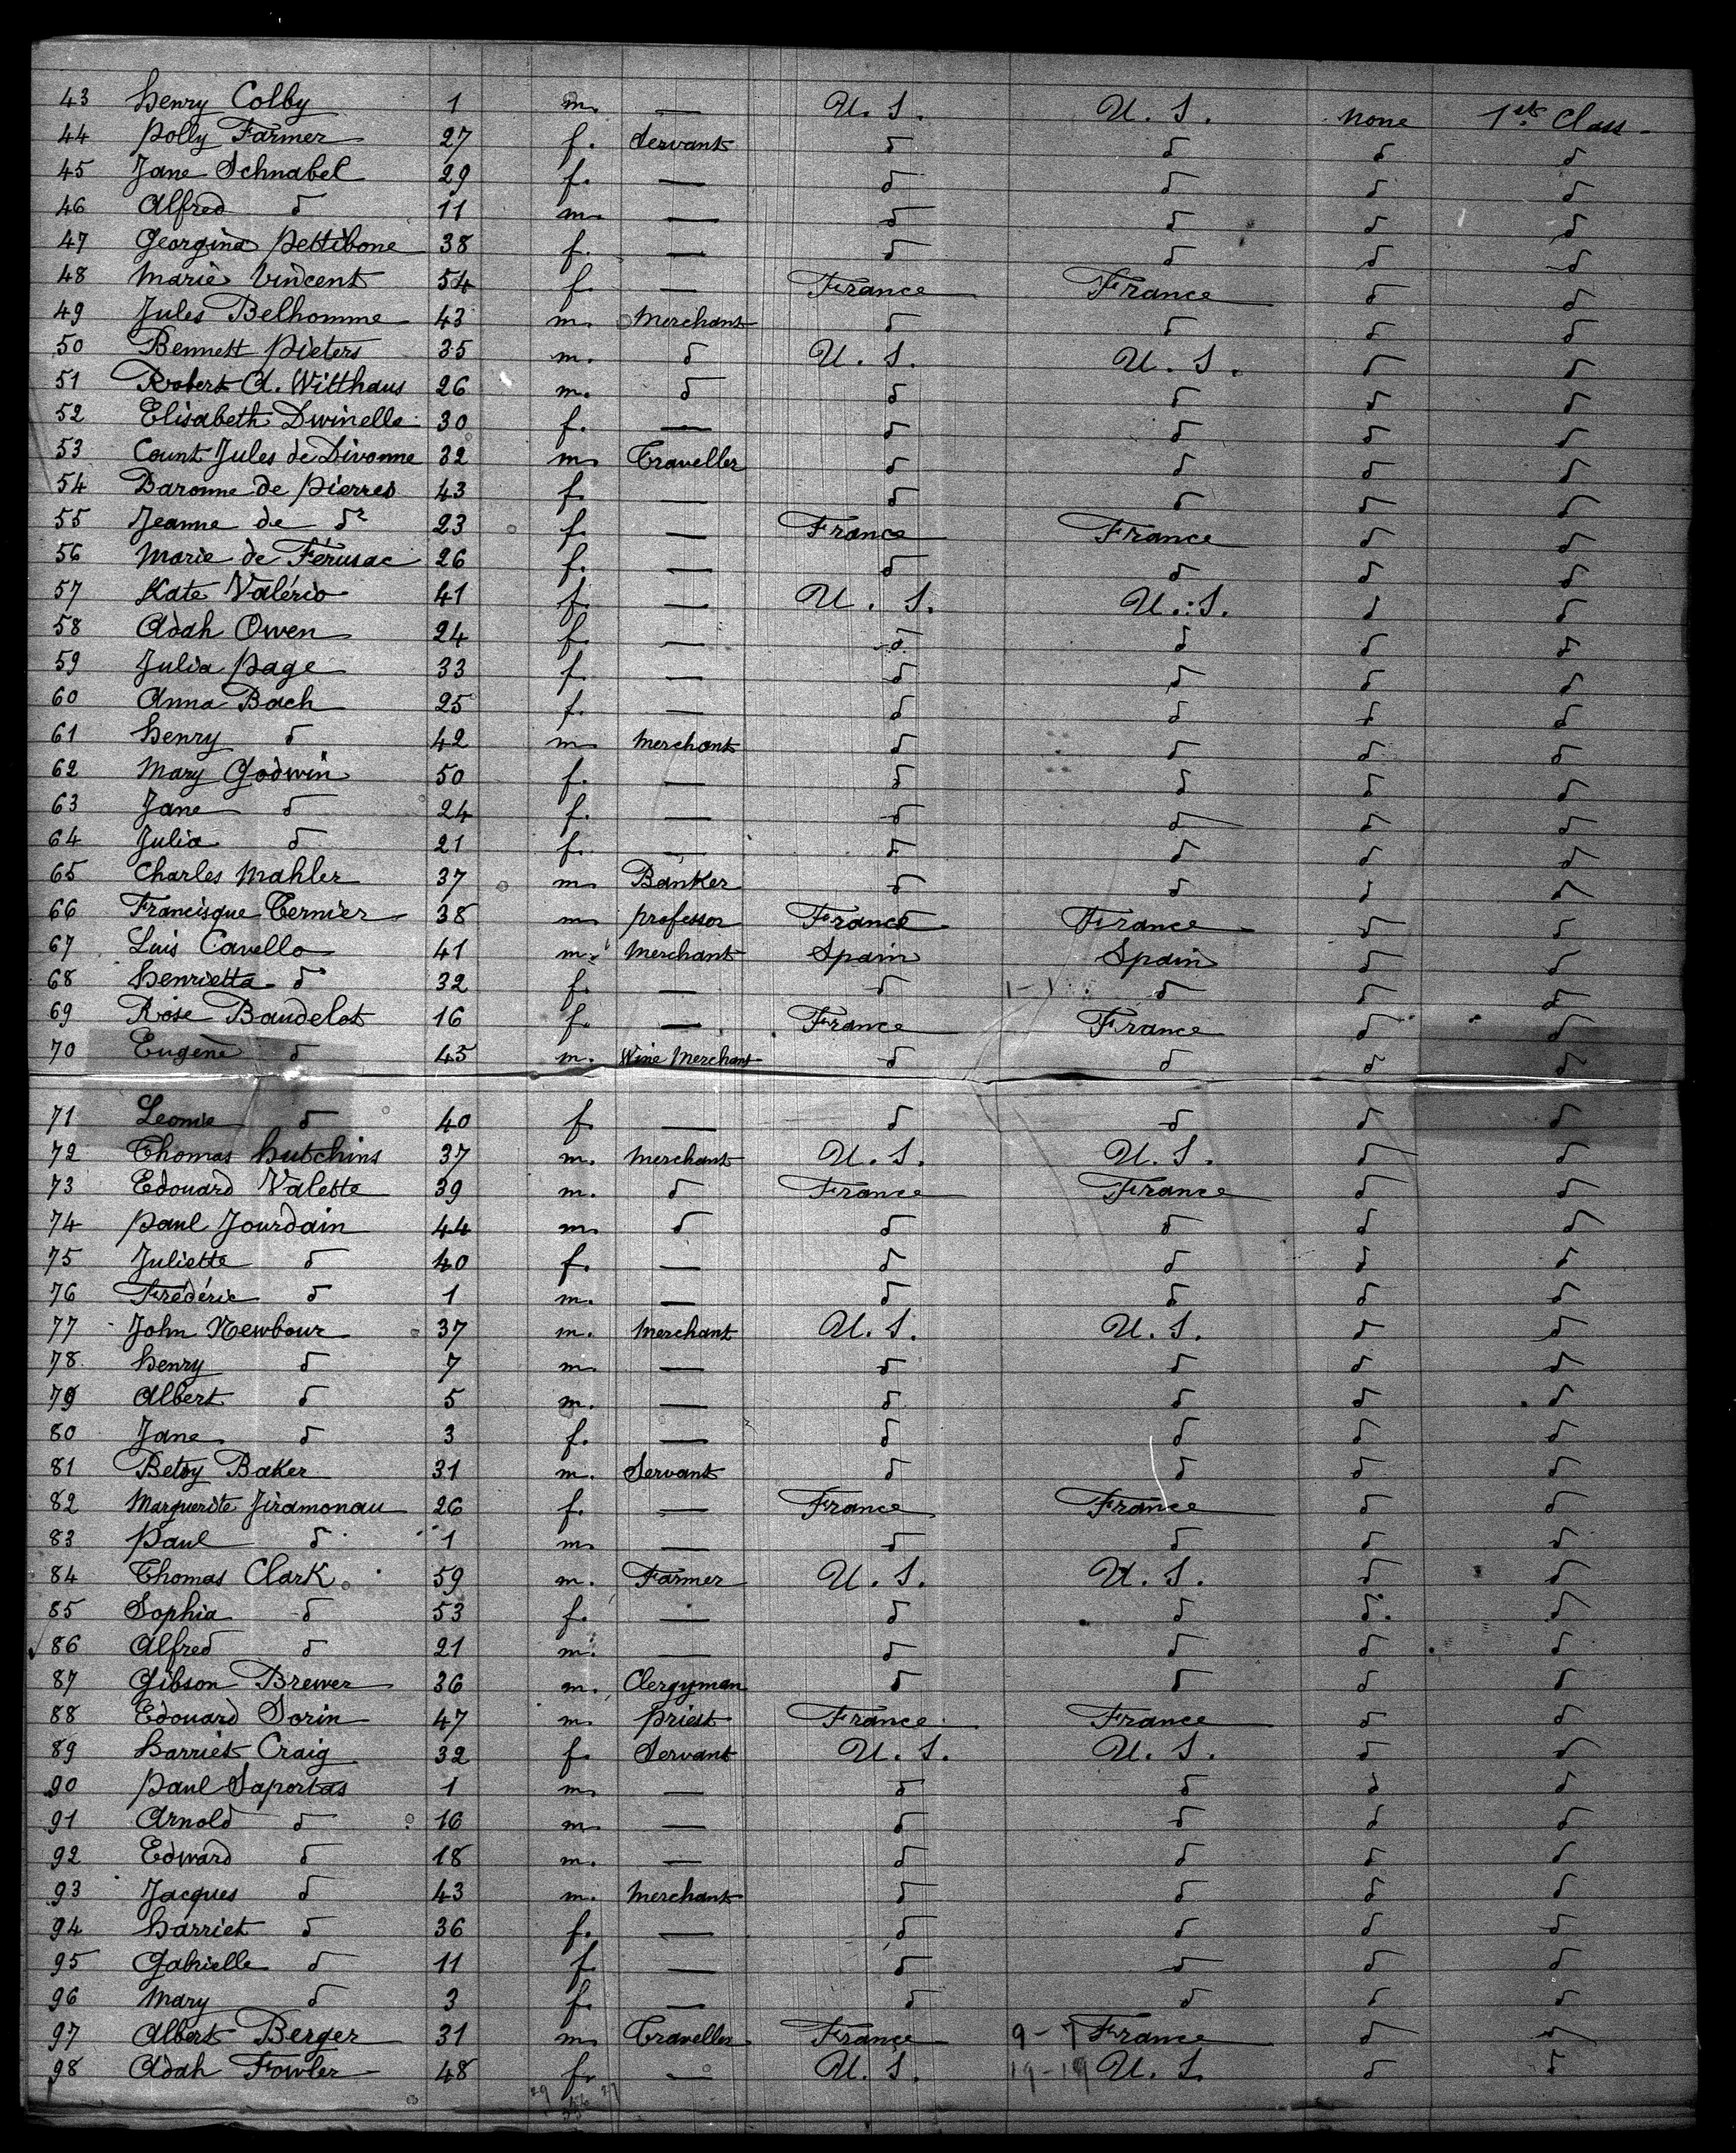 43 Henry Colby 1 m. — U. S. U. S. none 1st Class
44 Polly Farmer 27 f. Servant d d d d
45 Jane Schnabel 29 f. — d d d d
46 Alfred d 11 m. — d d d d
47 Georgina Pettibone 38 f. — d d d d
48 Marie Vincent 54 f. — France France d d
49 Jules Belhomme 43 m. Merchant d d d d
50 Bennett Pieters 35 m. d U. S. U. S. d d
51 Robert A. Witthaus 26 m. d d d d d
52 Elisabeth Dwinelle 30 f. — d d d d
53 Count Jules de Divonne 32 m. Traveller d d d d
54 Baronne de Pierres 43 f. — d d d d
55 Jeanne de do 23 f. — France France d d
56 Marie de Férusac 26 f. — d d d d
57 Kate Valério 41 f. — U. S. U. S. d d
58 Adah Owen 24 f. — d d d d
59 Julia Page 33 f. — d d d d
60 Anna Bach 25 f. — d d d d
61 Henry d 42 m. Merchant d d d d
62 Mary Godwin 50 f. — d d d d
63 Jane d 24 f. — d d d d
64 Julia d 21 f. — d d d d
65 Charles Mahler 37 m. Banker d d d d
66 Francisque Ternier 38 m. Professor France France d d
67 Luis Cavello 41 m. Merchant Spain Spain d d
68 Henrietta d 32 f. — d d d d
69 Rose Baudelot 16 f. — France France d d
70 Eugène d 45 m. Wine Merchant d d d d
71 Leonie d 40 f. — d d d d
72 Thomas Hutchins 37 m. Merchant U. S. U. S. d d
73 Edouard Valette 39 m. d France France d d
74 Paul Jourdain 44 m. d d d d d
75 Juliette d 40 f. — d d d d
76 Frédéric d 1 m. — d d d d
77 John Newbour 37 m. Merchant U. S. U. S. d d
78 Henry d 7 m. — d d d d
79 Albert d 5 m. — d d d d
80 Jane d 3 f. — d d d d
81 Betsy Baker 31 m. Servant d d d d
82 Marguerite Jiramonau 26 f. — France France d d
83 Paul d 1 m. — d d d d
84 Thomas Clark 59 m. Farmer U. S. U. S. d d
85 Sophia d 53 f. — d d d d
86 Alfred d 21 m. — d d d d
87 Gibson Brewer 36 m. Clergyman d d d d
88 Edouard Sorin 47 m. Priest France France d d
89 Harriet Craig 32 f. Servant U. S. U. S. d d
90 Paul Saportas 1 m. — d d d d
91 Arnold d 16 m. — d d d d
92 Edward d 18 m. — d d d d
93 Jacques d 43 m. Merchant d d d d
94 Harriet d 36 f. — d d d d
95 Gabrielle d 11 f. — d d d d
96 Mary d 3 f. — d d d d
97 Albert Berger 31 m. Traveller France 9-7 France d d
98 Adah Fowler 48 f. — U. S. 19-19 U. S. d d